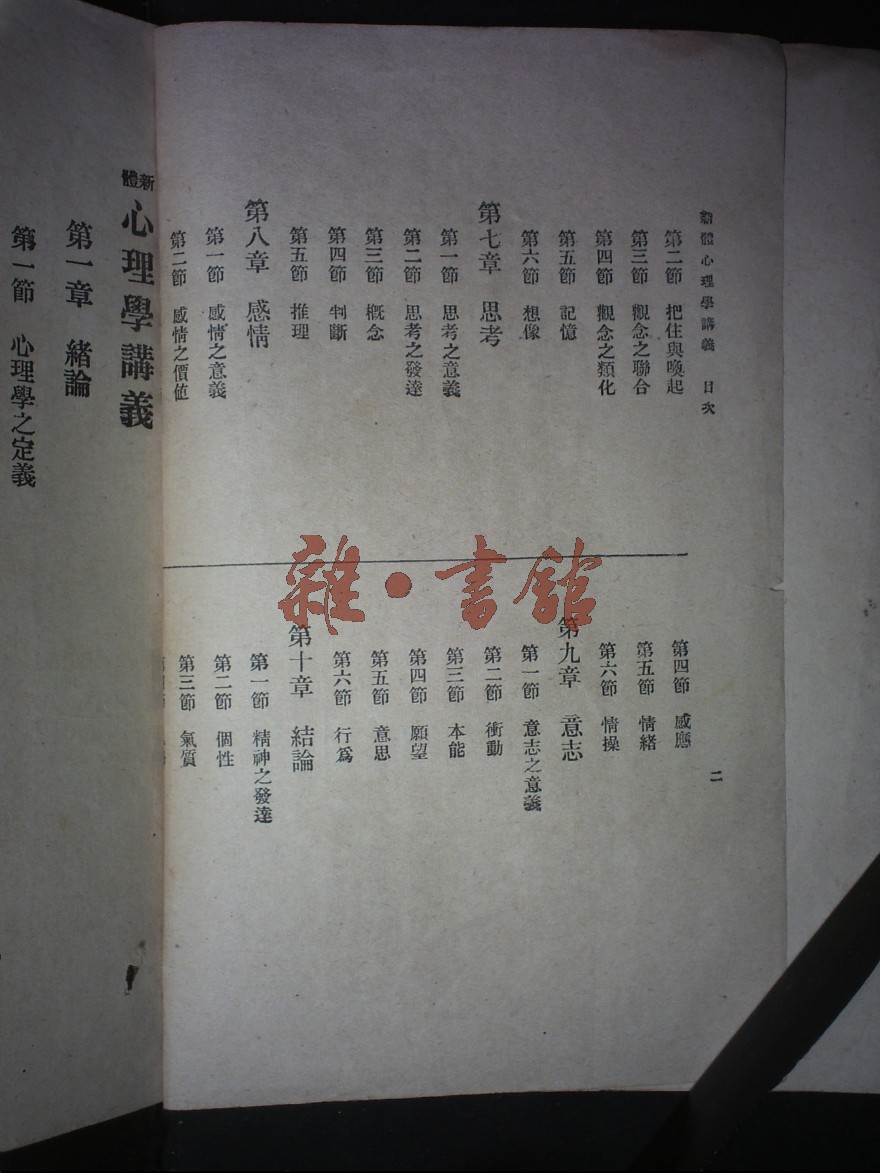 新體心理學講義　目次
第二節　把住與喚起
第三節　觀念之聯合
第四節　觀念之類化
第五節　記憶
第六節　想像
第七章　思考
第一節　思考之意義
第二節　思考之發達
第三節　概念
第四節　判斷
第五節　推理
第八章　感情
第一節　感情之意義
第二節　感情之價値
二
第四節　感應
第五節　情緒
第六節　情操
第九章　意志
第一節　意志之意義
第二節　衝動
第三節　本能
第四節　願望
第五節　意思
第六節　行爲
第十章　結論
第一節　精神之發達
第二節　個性
第三節　氣質
雜·書館
新體心理學講義
第一章　緒論
第一節　心理學之定義